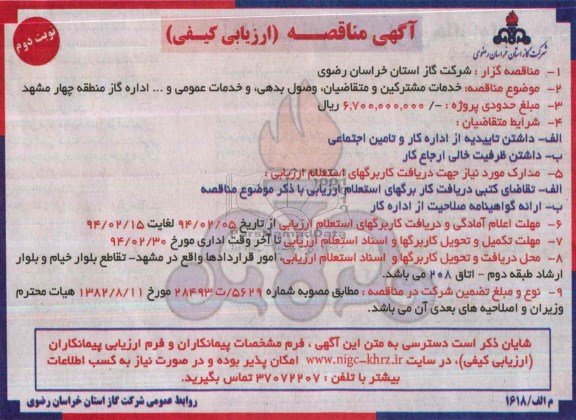 آگهی مناقصه (ارزیابی کیفی)
نوبت دوم
شرکت گاز استان خراسان رضوی
۱- مناقصه گزار : شرکت گاز استان خراسان رضوی
۲- موضوع مناقصه: خدمات مشترکین و متقاضیان، وصول بدهی، و خدمات عمومی و ... اداره گاز منطقه چهار مشهد
۳- مبلغ حدودی پروژه : -/ ۶,۷۰۰,۰۰۰,۰۰۰ ریال
۴- شرایط متقاضیان :
الف- داشتن تاییدیه از اداره کار و تامین اجتماعی
ب- داشتن ظرفیت خالی ارجاع کار
۵- مدارک مورد نیاز جهت دریافت کاربرگهای استعلام ارزیابی :
الف- تقاضای کتبی دریافت کار برگهای استعلام ارزیابی با ذکر موضوع مناقصه
ب- ارائه گواهینامه صلاحیت از اداره کار
۶- مهلت اعلام آمادگی و دریافت کاربرگهای استعلام ارزیابی از تاریخ ۹۴/۰۲/۰۵ لغایت ۹۴/۰۲/۱۵
۷- مهلت تکمیل و تحویل کاربرگها و اسناد استعلام ارزیابی تا آخر وقت اداری مورخ ۹۴/۰۲/۳۰
۸- محل دریافت و تحویل کاربرگها و اسناد استعلام ارزیابی، امور قراردادها واقع در مشهد- تقاطع بلوار خیام و بلوار
ارشاد طبقه دوم - اتاق ۲۰۸ می باشد.
۹- نوع و مبلغ تضمین شرکت در مناقصه : مطابق مصوبه شماره ۵۶۲۹/ت ۲۸۴۹۳ مورخ ۱۳۸۲/۸/۱۱ هیات محترم
وزیران و اصلاحیه های بعدی آن می باشد.
شایان ذکر است دسترسی به متن این آگهی ، فرم مشخصات پیمانکاران و فرم ارزیابی پیمانکاران
(ارزیابی کیفی)، در سایت www.nigc-khrz.ir امکان پذیر بوده و در صورت نیاز به کسب اطلاعات
بیشتر با تلفن : ۳۷۰۷۲۲۰۷ تماس بگیرید.
م الف/۱۶۱۸
روابط عمومی شرکت گاز استان خراسان رضوی